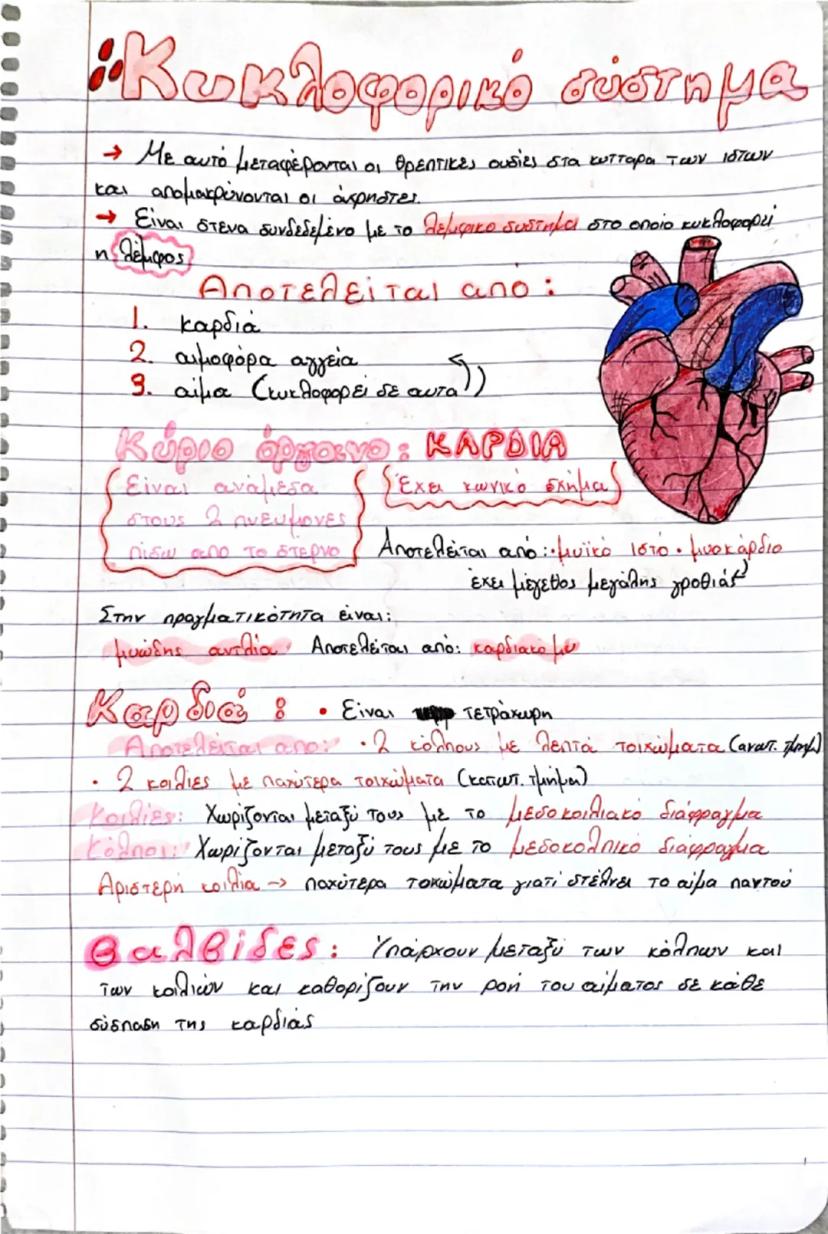 Κυκλοφορικό σύστημα
→ Με αυτό μεταφέρονται οι θρεπτικές ουσίες στα κύτταρα των ιστών
και απομακρύνονται οι άχρηστες.
→ Είναι στενά συνδεδεμένο με το λεμφικό σύστημα στο οποίο κυκλοφορεί
η λέμφος
Αποτελείται από:
1. καρδιά
2. αιμοφόρα αγγεία
3. αίμα (κυκλοφορεί σε αυτά)
Κύριο όργανο: ΚΑΡΔΙΑ
Είναι ανάμεσα
στους 2 πνεύμονες
πίσω από το στέρνο
Έχει κωνικό σχήμα
Αποτελείται από: · μυϊκό ιστό · μυοκάρδιο
έχει μέγεθος μεγάλης γροθιάς
Στην πραγματικότητα είναι:
μυώδης αντλία Αποτελείται από: καρδιακό μυ
Καρδιά: • Είναι τετράχωρη
Αποτελείται από: · 2 κόλπους με λεπτά τοιχώματα (ανωτ. τμημ.)
· 2 κοιλίες με παχύτερα τοιχώματα (κατωτ. τμήμα)
Κοιλίες: Χωρίζονται μεταξύ τους με το μεσοκοιλιακό διάφραγμα
Κόλποι: Χωρίζονται μεταξύ τους με το μεσοκολπικό διάφραγμα
Αριστερή κοιλία → παχύτερα τοιχώματα γιατί στέλνει το αίμα παντού
Βαλβίδες: Υπάρχουν μεταξύ των κόλπων και
των κοιλιών και καθορίζουν την ροή του αίματος σε κάθε
σύσπαση της καρδιάς